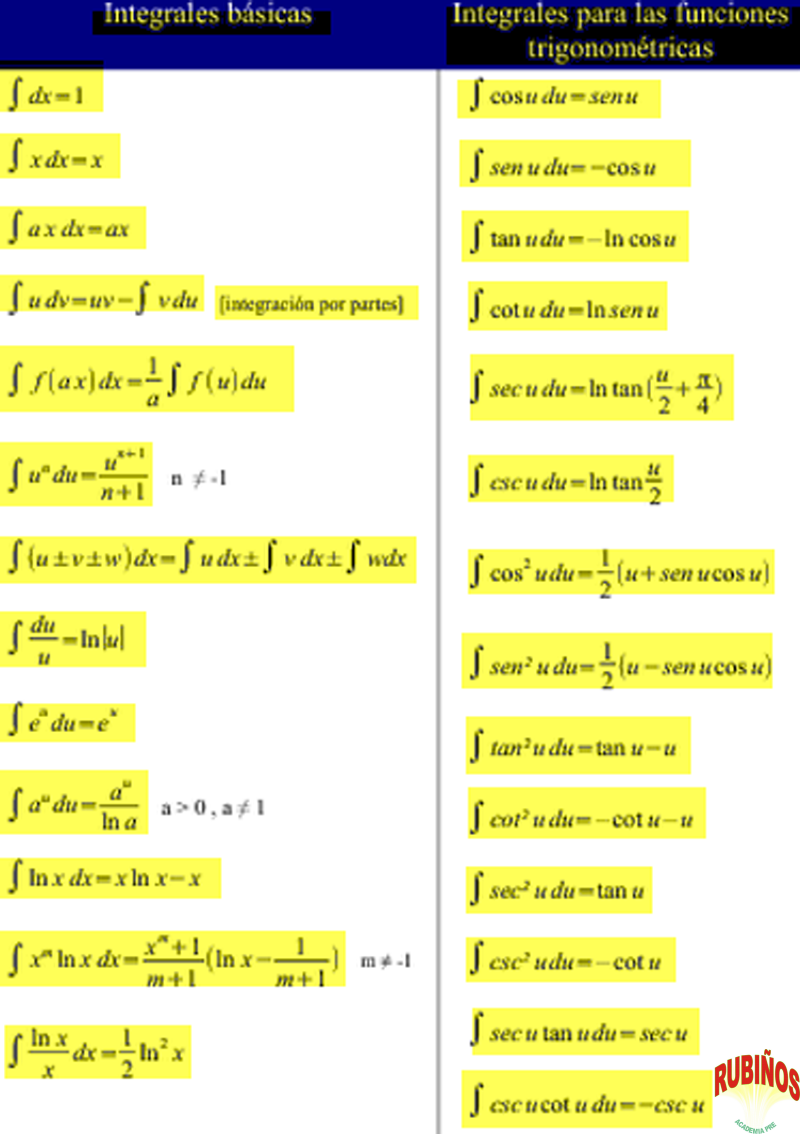 Integrales básicas
∫ dx=1
∫ x dx=x
∫ a x dx=ax
∫ u dv=uv−∫ v du (integración por partes)
∫ f(ax)dx=1/a ∫ f(u)du
∫ uⁿ du=uⁿ⁺¹/n+1 n ≠ -1
∫ (u±v±w)dx=∫ u dx±∫ v dx±∫ wdx
∫ du/u=ln|u|
∫ eᵘ du=eᵘ
∫ aᵘ du=aᵘ/ln a a > 0 , a ≠ 1
∫ ln x dx=x ln x−x
∫ xᵐ ln x dx=xᵐ+1/m+1(ln x−1/m+1) m ≠ -1
∫ ln x/x dx=1/2 ln² x
Integrales para las funciones
trigonométricas
∫ cos u du=sen u
∫ sen u du=−cos u
∫ tan u du=−ln cos u
∫ cot u du=ln sen u
∫ sec u du=ln tan(u/2+π/4)
∫ csc u du=ln tan u/2
∫ cos² u du=1/2(u+sen u cos u)
∫ sen² u du=1/2(u−sen u cos u)
∫ tan² u du=tan u−u
∫ cot² u du=−cot u−u
∫ sec² u du=tan u
∫ csc² u du=−cot u
∫ sec u tan u du=sec u
∫ csc u cot u du=−csc u
RUBIÑOS
ACADEMIA PRE